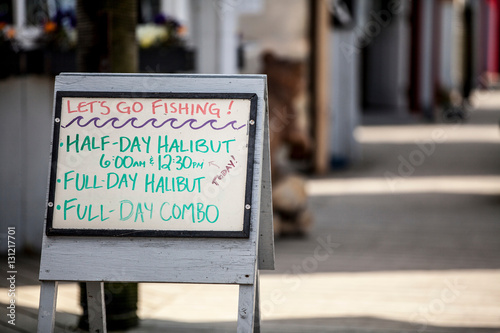 LET'S GO FISHING!
• HALF-DAY HALIBUT
6:00AM & 12:30PM
TODAY!
• FULL-DAY HALIBUT
• FULL-DAY COMBO
© 131217701